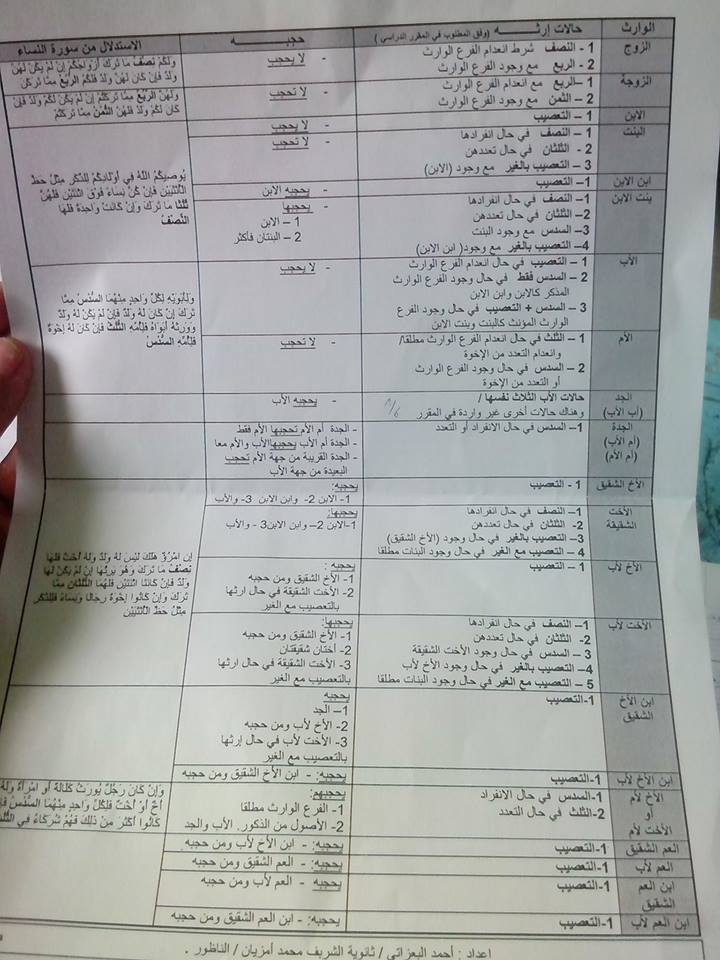 الوارث
حالات إرثــــه (وفق المطلوب في المقرر الدراسي)
حجبــــه
الاستدلال من سورة النساء
الزوج
1 - النصف شرط انعدام الفرع الوارث
2 - الربع مع وجود الفرع الوارث
- لا يحجب
وَلَكُمْ نِصْفُ مَا تَرَكَ أَزْوَاجُكُمْ إِنْ لَمْ يَكُنْ لَهُنَّ
وَلَدٌ فَإِنْ كَانَ لَهُنَّ وَلَدٌ فَلَكُمُ الرُّبُعُ مِمَّا تَرَكْنَ
الزوجة
1 –الربع مع انعدام الفرع الوارث
2 – الثمن مع وجود الفرع الوارث
- لا تحجب
وَلَهُنَّ الرُّبُعُ مِمَّا تَرَكْتُمْ إِنْ لَمْ يَكُنْ لَكُمْ وَلَدٌ فَإِنْ
كَانَ لَكُمْ وَلَدٌ فَلَهُنَّ الثُّمُنُ مِمَّا تَرَكْتُمْ
الابن
1 – التعصيب
- لا يحجب
البنت
1 – النصف في حال انفرادها
2 - الثلثان في حال تعددهن
3 – التعصيب بالغير مع وجود (الابن)
- لا تحجب
يُوصِيكُمُ اللَّهُ فِي أَوْلَادِكُمْ لِلذَّكَرِ مِثْلُ حَظِّ
الْأُنْثَيَيْنِ فَإِنْ كُنَّ نِسَاءً فَوْقَ اثْنَتَيْنِ فَلَهُنَّ
ثُلُثَا مَا تَرَكَ وَإِنْ كَانَتْ وَاحِدَةً فَلَهَا
النِّصْفُ
ابن الابن
1– التعصيب
- يحجبه الابن
بنت الابن
1– النصف في حال انفرادها
2– الثلثان في حال تعددهن
3– السدس مع وجود البنت
4– التعصيب بالغير مع وجود( ابن الابن)
- يحجبها
1 – الابن
2 – البنتان فأكثر
الأب
1 – التعصيب في حال انعدام الفرع الوارث
2 – السدس فقط في حال وجود الفرع الوارث
المذكر كالابن وابن الابن
3 – السدس + التعصيب في حال وجود الفرع
الوارث المؤنث كالبنت وبنت الابن
- لا يحجب
وَلِأَبَوَيْهِ لِكُلِّ وَاحِدٍ مِنْهُمَا السُّدُسُ مِمَّا
تَرَكَ إِنْ كَانَ لَهُ وَلَدٌ فَإِنْ لَمْ يَكُنْ لَهُ وَلَدٌ
وَوَرِثَهُ أَبَوَاهُ فَلِأُمِّهِ الثُّلُثُ فَإِنْ كَانَ لَهُ إِخْوَةٌ
فَلِأُمِّهِ السُّدُسُ
الأم
1 – الثلث في حال انعدام الفرع الوارث مطلقا/
وانعدام التعدد من الإخوة
2 – السدس في حال وجود الفرع الوارث
أو التعدد من الإخوة
- لا تحجب
الجد
(أب الأب)
حالات الأب الثلاث نفسها /
وهناك حالات أخرى غير واردة في المقرر
- يحجبه الأب
الجدة
(أم الأب)
(أم الأم)
1– السدس في حال الانفراد أو التعدد
- الجدة أم الأم تحجبها الأم فقط
- الجدة أم الأب يحجبهاالأب والأم معا
- الجدة القريبة من جهة الأم تحجب
البعيدة من جهة الأب
الأخ الشقيق
1 - التعصيب
يحجبه:
1- الابن 2- وابن الابن 3- والأب
الأخت
الشقيقة
1– النصف في حال انفرادها
2- الثلثان في حال تعددهن
3– التعصيب بالغير في حال وجود (الأخ الشقيق)
4 – التعصيب مع الغير في حال وجود البنات مطلقا
يحجبها:
1-الابن 2– وابن الابن3 - والأب
إِنِ امْرُؤٌ هَلَكَ لَيْسَ لَهُ وَلَدٌ وَلَهُ أُخْتٌ فَلَهَا
نِصْفُ مَا تَرَكَ وَهُوَ يَرِثُهَا إِنْ لَمْ يَكُنْ لَهَا
وَلَدٌ فَإِنْ كَانَتَا اثْنَتَيْنِ فَلَهُمَا الثُّلُثَانِ مِمَّا
تَرَكَ وَإِنْ كَانُوا إِخْوَةً رِجَالًا وَنِسَاءً فَلِلذَّكَرِ
مِثْلُ حَظِّ الْأُنْثَيَيْنِ
الأخ لأب
1 – التعصيب
يحجبه :
1- الأخ الشقيق ومن حجبه
2- الأخت الشقيقة في حال ارثها
بالتعصيب مع الغير
الأخت لأب
1– النصف في حال انفرادها
2- الثلثان في حال تعددهن
3 – السدس في حال وجود الأخت الشقيقة
4– التعصيب بالغير في حال وجود الأخ لأب
5 – التعصيب مع الغير في حال وجود البنات مطلقا
يحجبها:
1- الأخ الشقيق ومن حجبه
2- أختان شقيقتان
3- الأخت الشقيقة في حال ارثها
بالتعصيب مع الغير
ابن الأخ
الشقيق
1-التعصيب
يحجبه
1– الجد
2- الأخ لأب ومن حجبه
3- الأخت لأب في حال إرثها
بالتعصيب مع الغير
ابن الأخ لأب
1-التعصيب
يحجبه: - ابن الأخ الشقيق ومن حجبه
الأخ لأم
أو
الأخت لأم
1-السدس في حال الانفراد
2-الثلث في حال التعدد
يحجبهم:
1- الفرع الوارث مطلقا
2- الأصول من الذكور. الأب والجد
وَإِنْ كَانَ رَجُلٌ يُورَثُ كَلَالَةً أَوِ امْرَأَةٌ وَلَهُ
أَخٌ أَوْ أُخْتٌ فَلِكُلِّ وَاحِدٍ مِنْهُمَا السُّدُسُ فَإِنْ
كَانُوا أَكْثَرَ مِنْ ذَلِكَ فَهُمْ شُرَكَاءُ فِي الثُّلُثِ
العم الشقيق
1-التعصيب
يحجبه: - ابن الأخ لأب ومن حجبه
العم لأب
1-التعصيب
يحجبه: - العم الشقيق ومن حجبه
ابن العم
الشقيق
1-التعصيب
يحجبه - العم لأب ومن حجبه
ابن العم لأب
1-التعصيب
يحجبه: - ابن العم الشقيق ومن حجبه
إعداد : أحمد البعزاتي / ثانوية الشريف محمد أمزيان / الناظور .